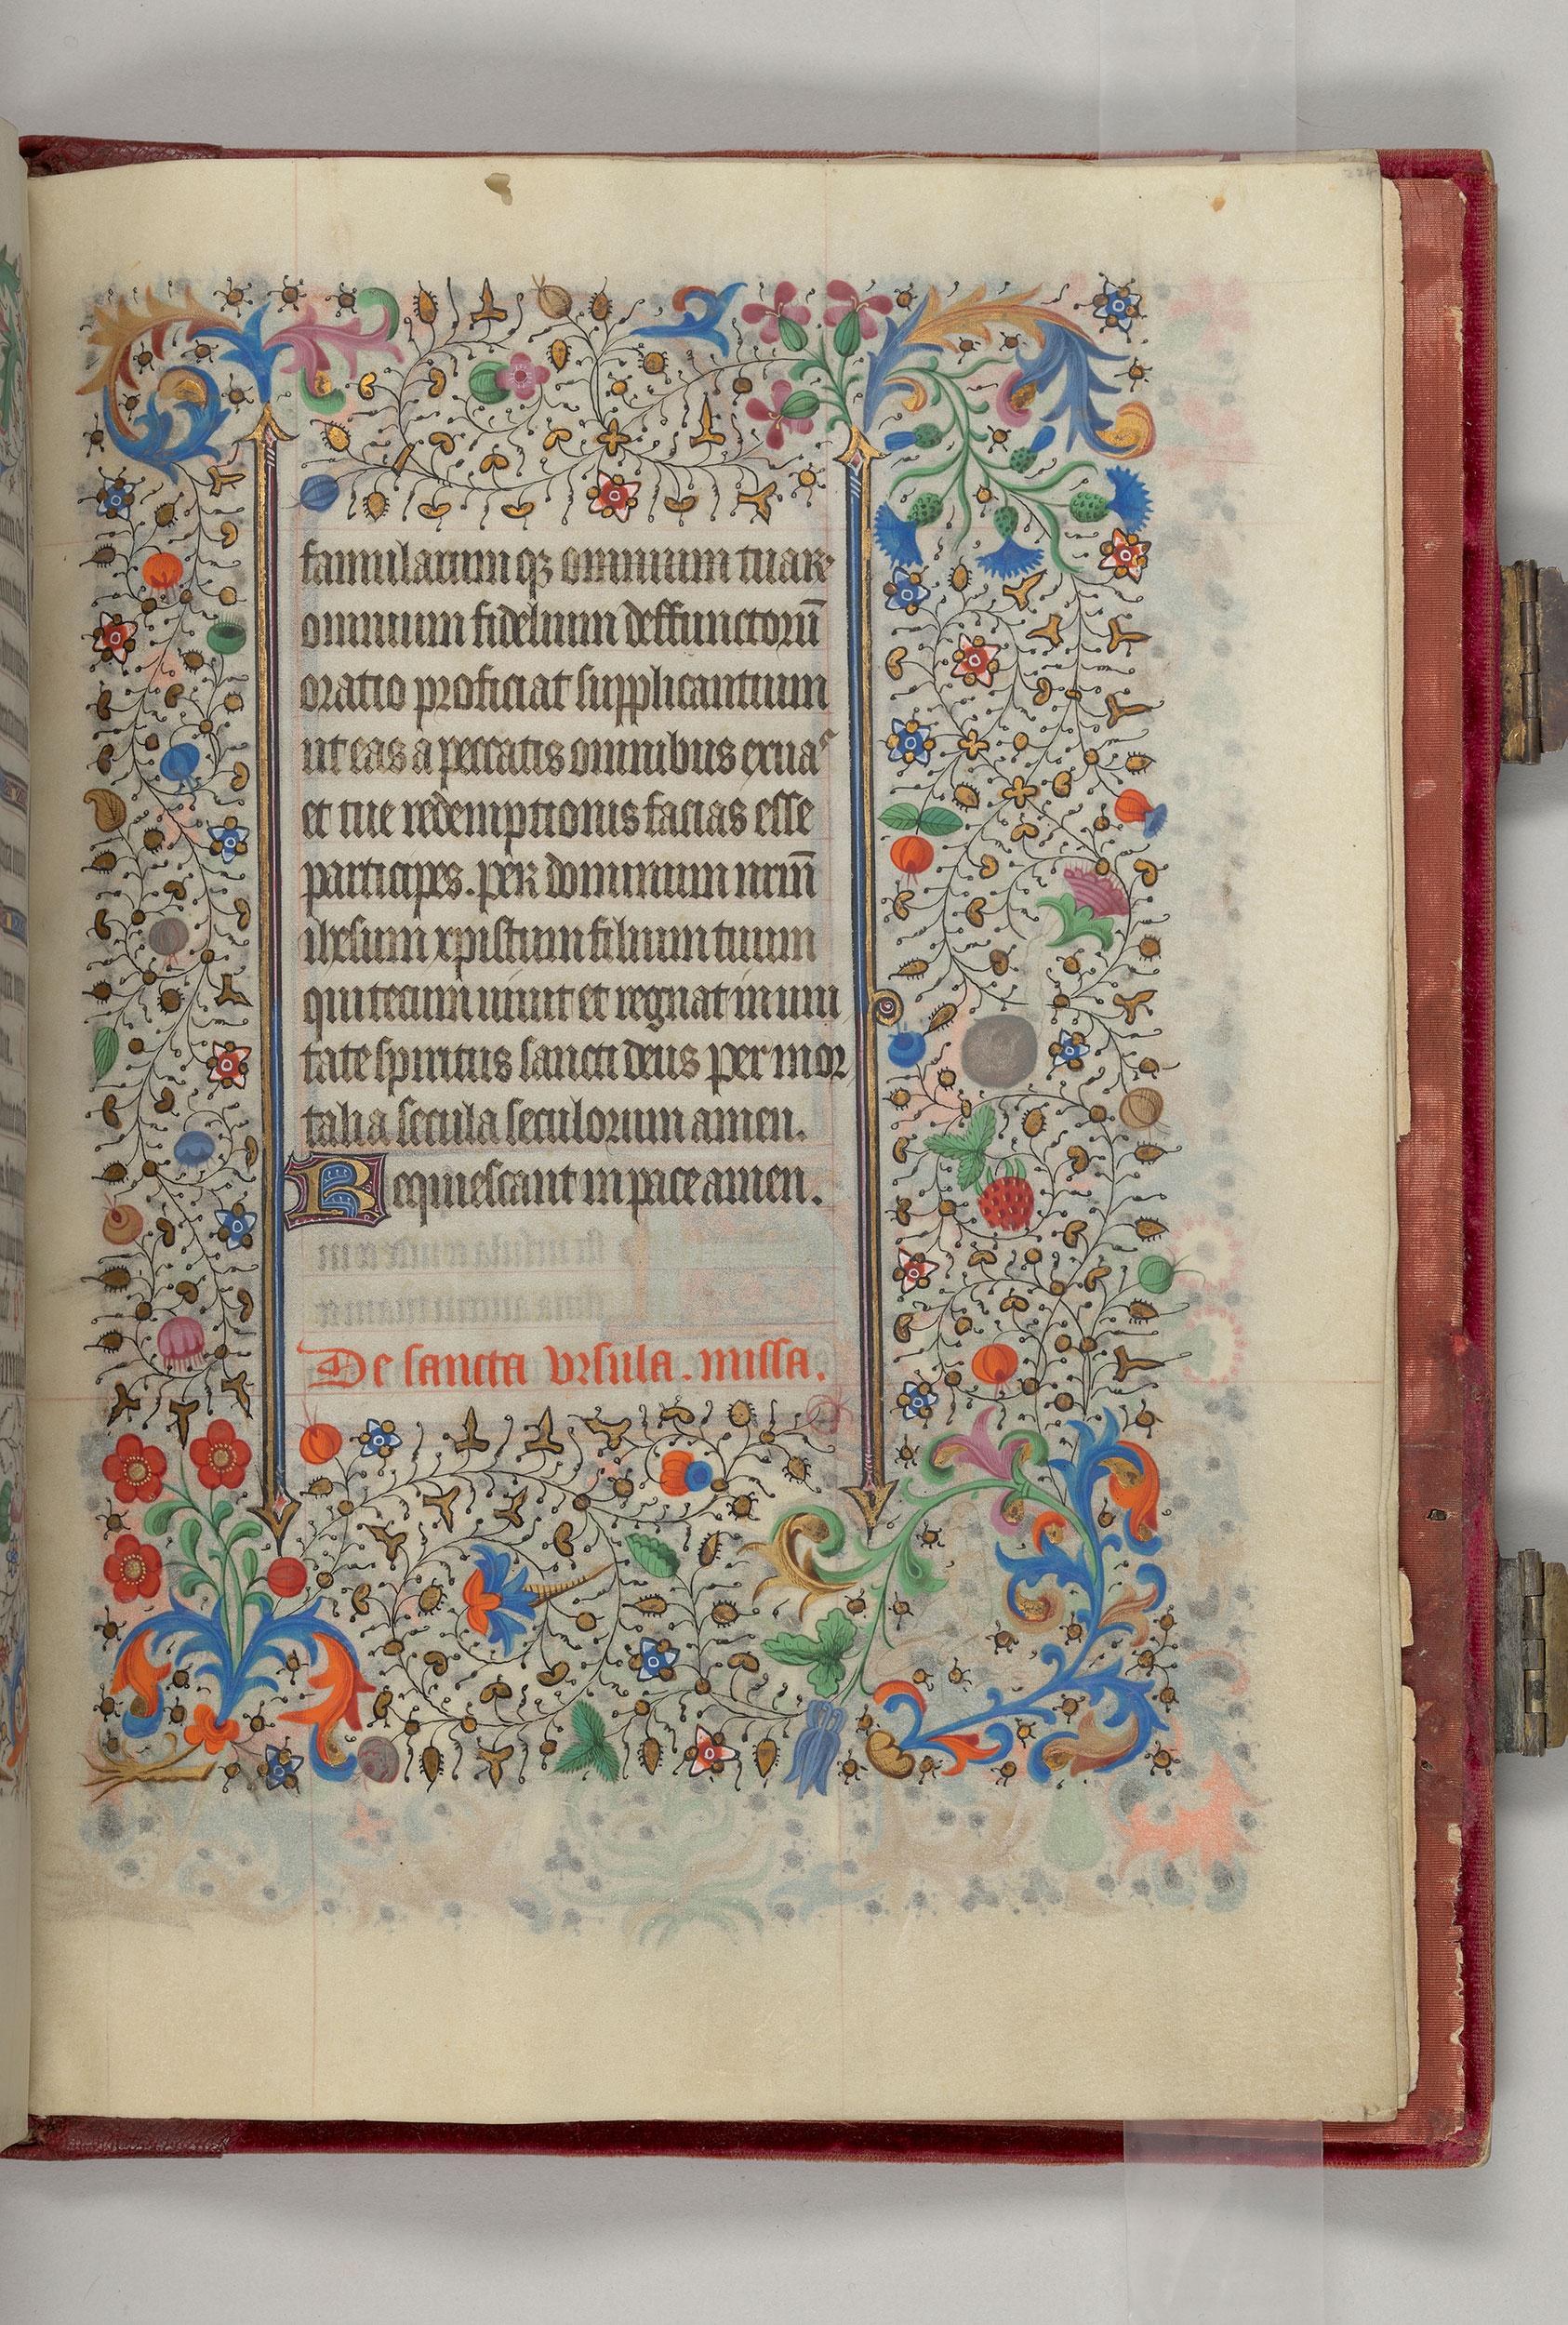 famularum qꝫ omnium tuaꝝ
omnium fidelium deffunctorū
oratio proficiat supplicantium
ut eas a peccatis omnibus exuas
et tue redemptionis facias esse
participes. per dominum nr̄m
ihesum xpistum filium tuum
qui tecum uiuit et regnat in uni
tate spiritus sancti deus per inmor
talia secula seculorum amen.
Requiescant in pace amen.
De sancta vrsula. missa.